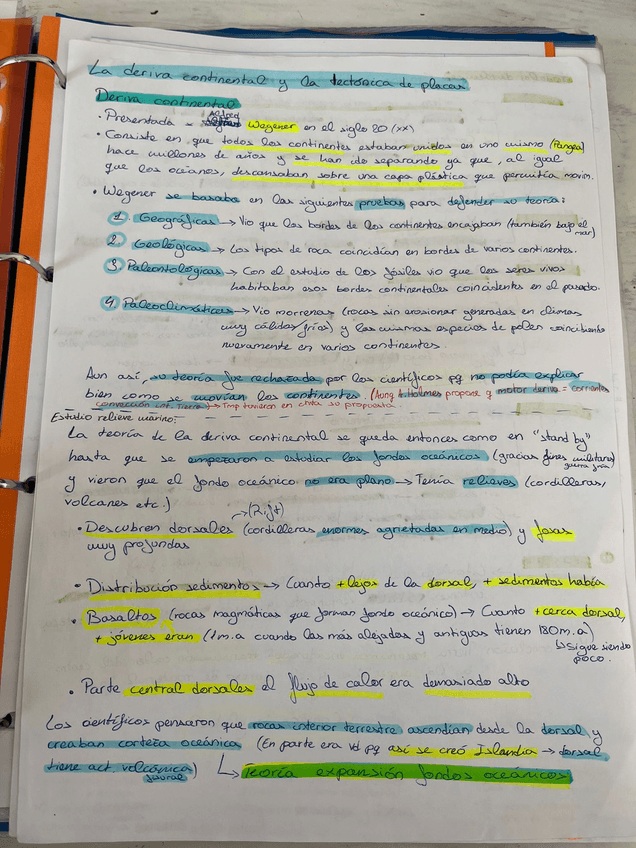 La deriva continental y la tectónica de placas
Deriva continental
• Presentada x Alfred Wegener en el siglo 20 (xx)
• Consiste en que todos los continentes estaban unidos en uno mismo (Pangea)
hace millones de años y se han ido separando ya que, al igual
que los océanos, descansaban sobre una capa plástica que permitía movim.
• Wegener se basaba en las siguientes pruebas para defender su teoría:
1 Geográficas → Vio que los bordes de los continentes encajaban (también bajo el mar)
2 Geológicas → Los tipos de roca coincidían en bordes de varios continentes.
3 Paleontológicas → Con el estudio de los fósiles vio que los seres vivos
habitaban esos bordes continentales coincidentes en el pasado.
4 Paleoclimáticas → Vio morrenas (rocas sin erosionar generadas en climas
muy cálidos/fríos) y las mismas especies de polen coincidiendo
nuevamente en varios continentes.
Aun así, su teoría fue rechazada por los científicos pq no podía explicar
bien como se movían los continentes. (Aunq Holmes propone q motor deriva = corrientes
convección int. Tierra) → Tmp tuvieron en cnta su propuesta.
Estudio relieve marino:
La teoría de la deriva continental se queda entonces como en "stand by"
hasta que se empezaron a estudiar los fondos oceánicos (gracias fines militares guerra fría)
y vieron que el fondo oceánico no era plano → Tenía relieves (cordilleras,
volcanes etc.)
→ (Rift)
• Descubren dorsales (cordilleras enormes agrietadas en medio) y fosas
muy profundas
• Distribución sedimentos → Cuanto + lejos de la dorsal, + sedimentos había
• Basaltos (rocas magmáticas que forman fondo oceánico) → Cuanto + cerca dorsal,
+ jóvenes eran (1m.a cuando las más alejadas y antiguas tienen 180m.a)
↳ Sigue siendo poco.
• Parte central dorsales el flujo de calor era demasiado alto
Los científicos pensaron que rocas interior terrestre ascendían desde la dorsal y
creaban corteza oceánica (En parte era vd pq así se creó Islandia → dorsal
tiene act. volcánica)
↳ Teoría expansión fondos oceánicos